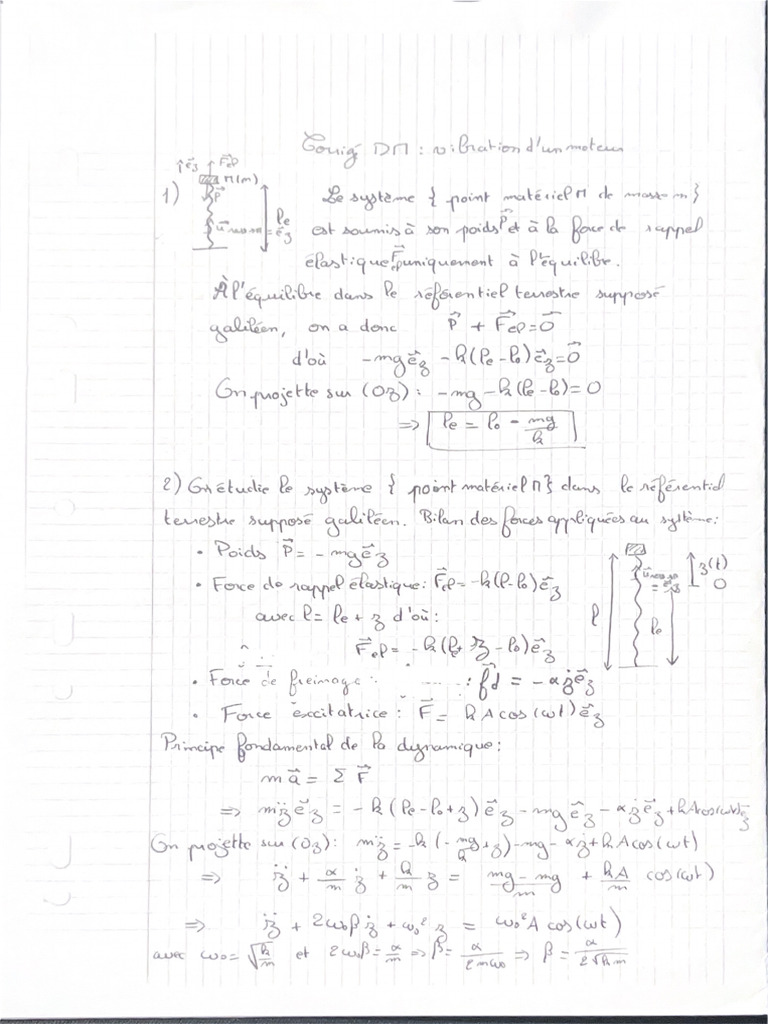 Corrigé DM : vibration d'un moteur
↑e⃗z ↑F⃗el
M(m)
P⃗
le
u⃗ = e⃗z
1) Le système { point matériel M de masse m}
est soumis à son poids P⃗ et à la force de rappel
élastique F⃗el uniquement à l'équilibre.
À l'équilibre dans le référentiel terrestre supposé
galiléen, on a donc P⃗ + F⃗el = 0⃗
d'où -mg e⃗z - k(le - l0) e⃗z = 0⃗
On projette sur (Oz) : -mg - k(le - l0) = 0
⇒ le = l0 - mg/k
2) On étudie le système { point matériel M} dans le référentiel
terrestre supposé galiléen. Bilan des forces appliquées au système :
• Poids P⃗ = - mg e⃗z
• Force de rappel élastique : F⃗el = -k(l-l0) e⃗z
avec l = le + z d'où :
F⃗el = - k (le + z - l0) e⃗z
l
le
z(t)
O
• Force de freinage : f⃗d = - α ż e⃗z
• Force excitatrice : F⃗ = k A cos(ωt) e⃗z
Principe fondamental de la dynamique :
m a⃗ = Σ F⃗
⇒ m z̈ e⃗z = - k (le - l0 + z) e⃗z - mg e⃗z - α ż e⃗z + kA cos(ωt) e⃗z
On projette sur (Oz) : m z̈ = -k (- mg/k + z) - mg - α ż + k A cos(ωt)
⇒ z̈ + α/m ż + k/m z = (mg - mg)/m + kA/m cos(ωt)
⇒ z̈ + 2ω0β ż + ω0² z = ω0² A cos(ωt)
avec ω0 = √(k/m) et 2ω0β = α/m ⇒ β = α/(2mω0) ⇒ β = α/(2√(km))